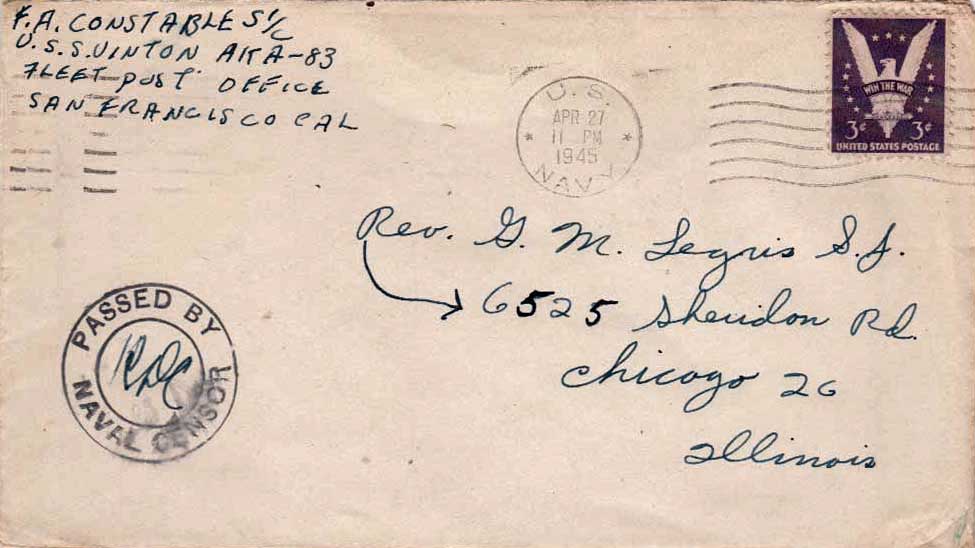 F.A. CONSTABLE S1/C
U.S.S. VINTON AKA-83
FLEET POST OFFICE
SAN FRANCISCO CAL
U.S.
APR 27
11 PM
1945
NAVY
WIN THE WAR
3¢ 3¢
UNITED STATES POSTAGE
Rev. G. M. Legris S.J.
6525 Sheridon Rd.
Chicago 26
Illinois
PASSED BY
NAVAL CENSOR